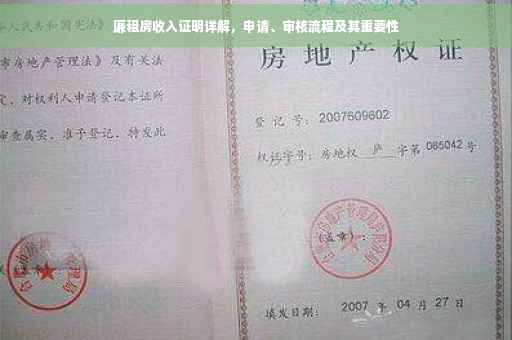 廉租房收入证明详解，申请、审核流程及其重要性
人民共和国宪法》
市房地产管理法》及有关
定，对权利人申请登记本证所
审查属实，准予登记，特发此
房地产权
登记号：2007609602
权证字号：房地权 庐 字第 065042号
（盖章）：
填发日期： 2007 年 04 月 27 日